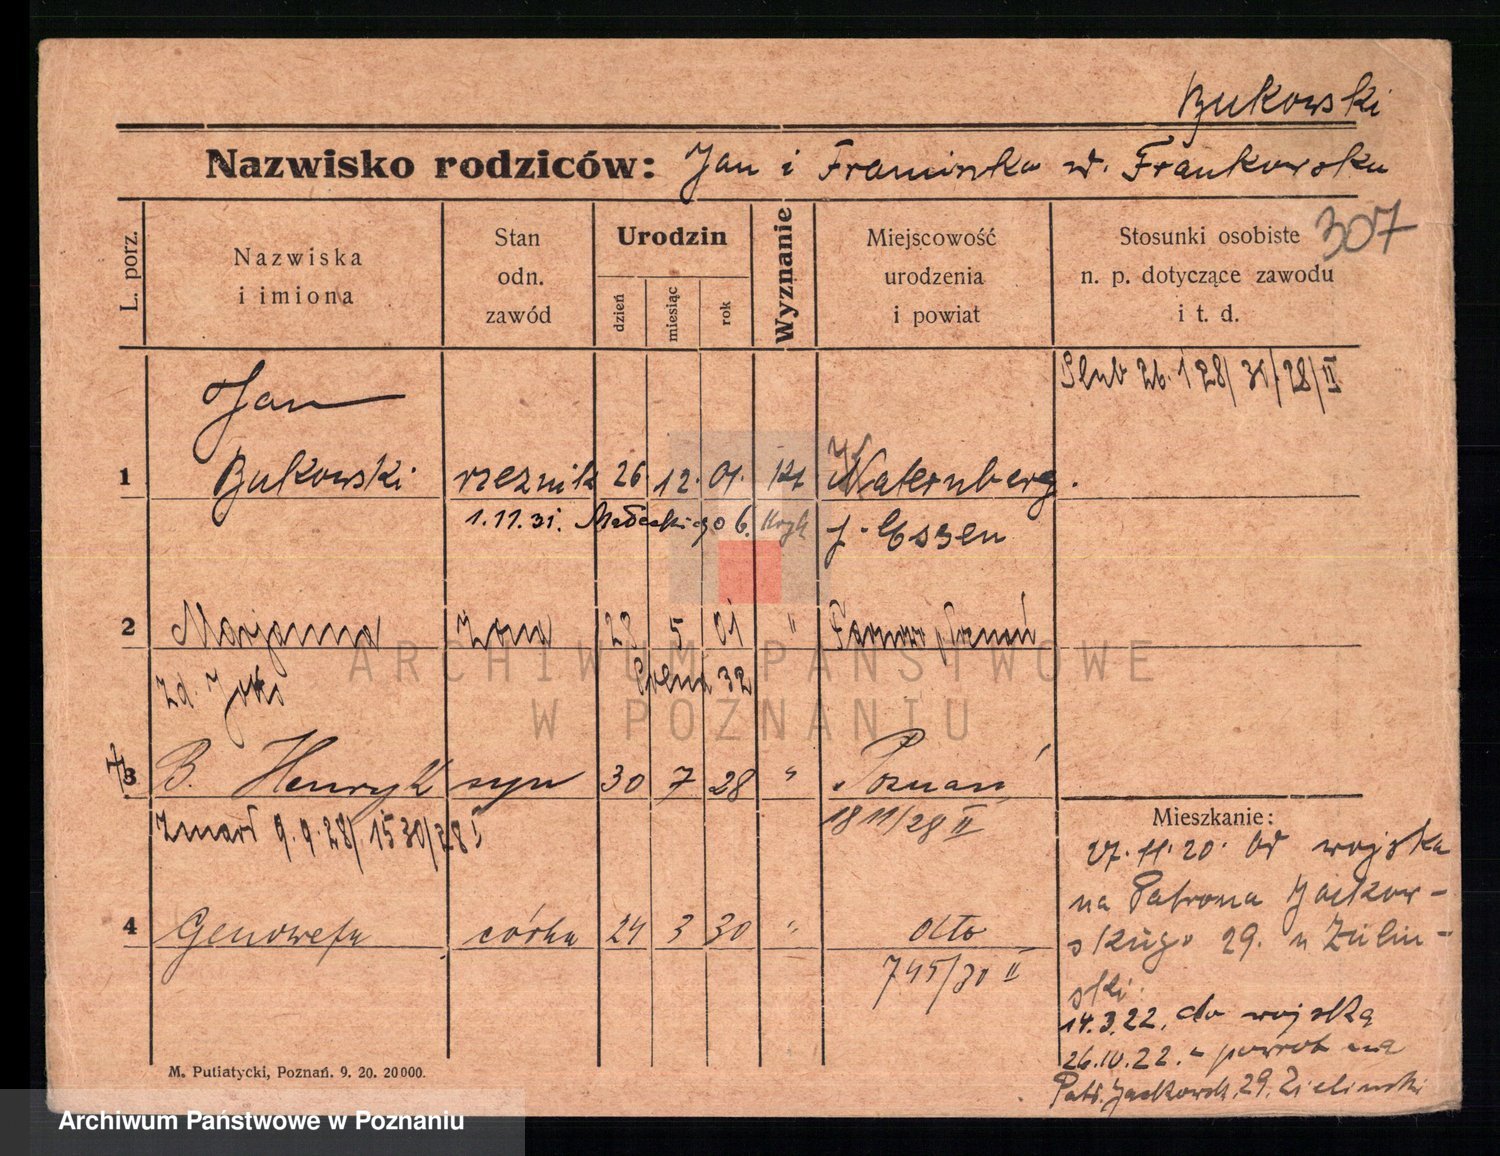 Bukowski
Nazwisko rodziców: Jan i Franciszka w. Frankowska
307
L. porz.
Nazwiska
i imiona
Stan
odn.
zawód
Urodzin
dzień
miesiąc
rok
Wyznanie
Miejscowość
urodzenia
i powiat
Stosunki osobiste
n. p. dotyczące zawodu
i t. d.
Ślub 26.1 28/ 31/28/II
Jan
1 Bukowski rzeznik 26 12. 01. kt Katernberg.
1.11.31. Małeckiego 6. p. Essen
2 Marjanna żona 28 5 01 "
zd 32
3 B. Henryk syn 30 7 28 " Poznań
Zmarł 9.9.28/. 1530/28 1811/28 II
4 Genowefa córka 24 3 30 "
745/30 II
Mieszkanie:
27.11.20. od wojska
na Patrona Jackow-
skiego 29. u Zielin-
ski.
14.3.22. do wojska
26.10.22. powrot na
Patr. Jackowsk. 29. Zielinski
M. Putiatycki, Poznań. 9. 20. 20000.
ARCHIWUM PAŃSTWOWE
W POZNANIU
Archiwum Państwowe w Poznaniu